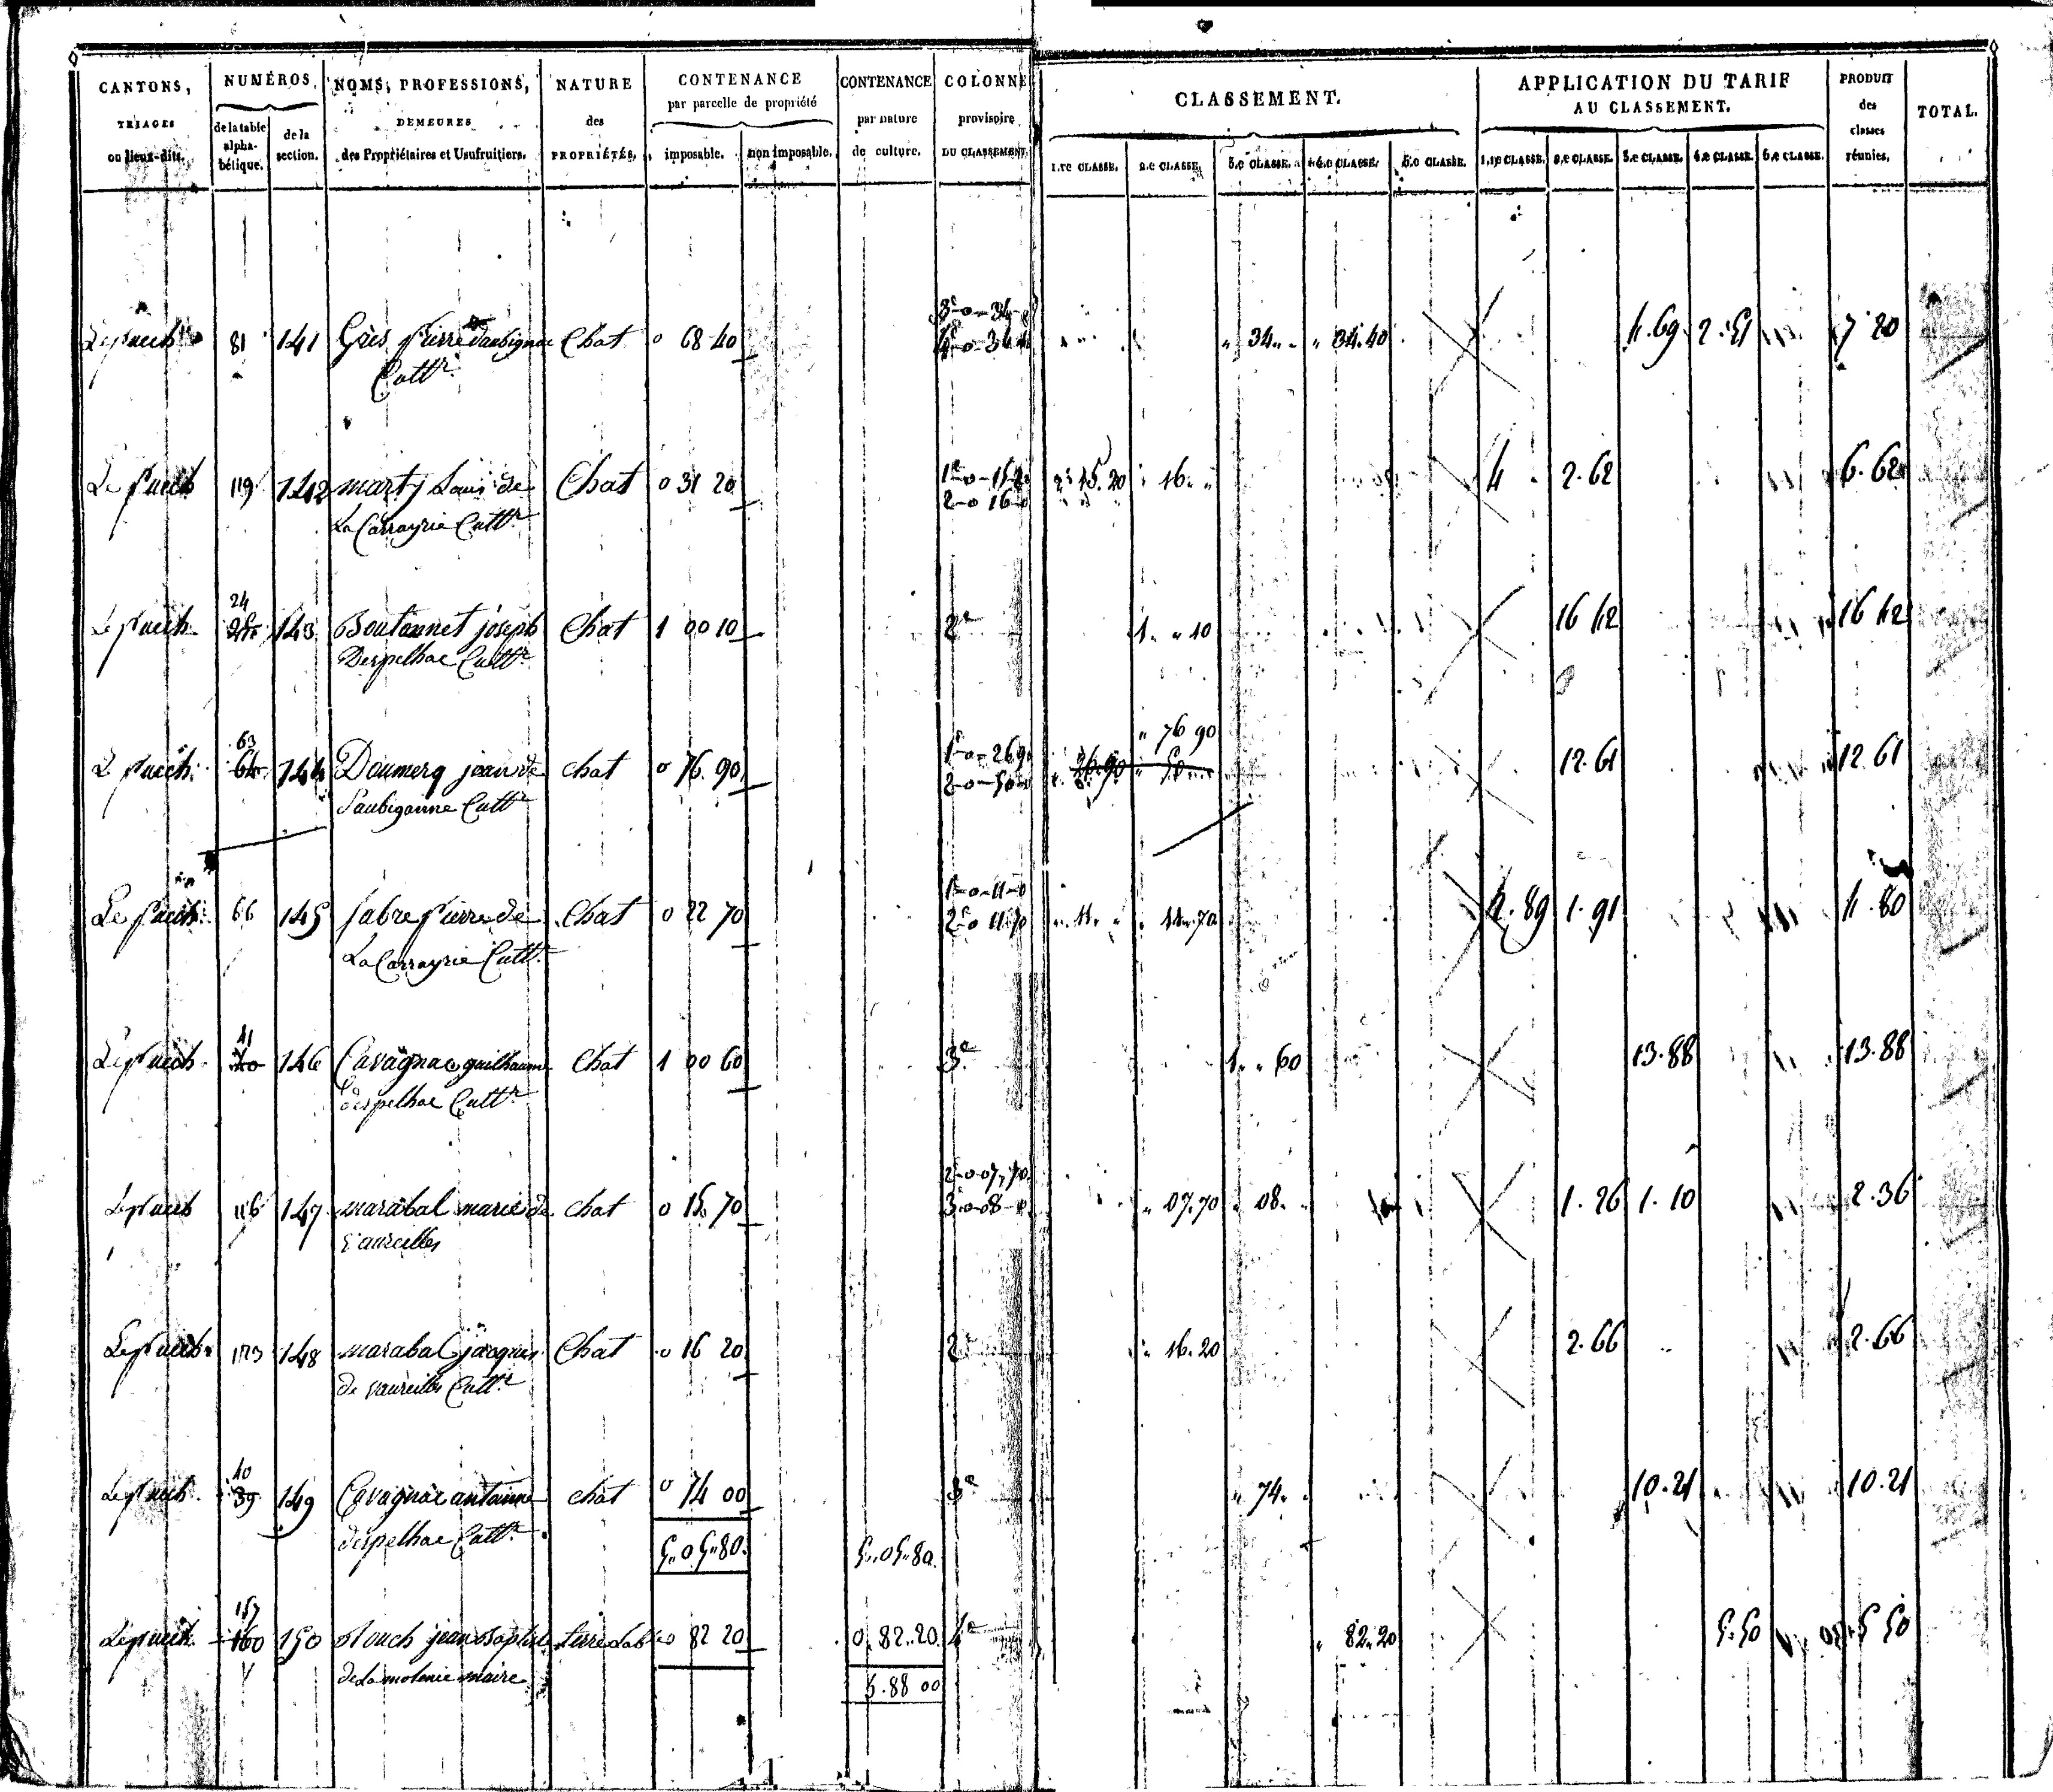 CANTONS, NUMÉROS, NOMS, PROFESSIONS, NATURE CONTENANCE CONTENANCE COLONNE CLASSEMENT. APPLICATION DU TARIF PRODUIT TOTAL.
TRIAGES de la table alphabétique. de la section. DEMEURES des par parcelle de propriété par nature provisoire AU CLASSEMENT. des classes
ou lieux-dits. des Propriétaires et Usufruitiers. PROPRIÉTÉS. imposable. non imposable. de culture. DU CLASSEMENT. 1.re CLASSE. 2.e CLASSE. 3.e CLASSE. 4.e CLASSE. 5.e CLASSE. 1.re CLASSE. 2.e CLASSE. 3.e CLASSE. 4.e CLASSE. 5.e CLASSE. réunies.
3e 0-34-0
Le puech 81 141 Grès pierre daubignac Chat 0 68 40 4e 0-34 „ 34 „ „ 34.40 4.69 2.51 7 20
Cultr
Le puech 119 142 marty Louis de Chat 0 31 20 1e 0-15-20 „ 15.20 16 „ 4 2.62 6.62
La Carrayrie Cultr 2-0 16-0
24
Le puech 143 Boutonnet joseph Chat 1 00 10 2e 1 „ „ 10 16 42 16 42
Despelhac Cultr
63 „ 76 90
Le puech 64 144 Doumerq jean de chat 0 76.90 1e 0-26.90 26.90 50 12.61 12.61
Saubiganne Cultr 2-0-50-0
1e 0-11-0
Le puech 66 145 fabre pierre de Chat 0 22 70 2e 0 11.70 „ 11 „ „ 11.70 2.89 1.91 4.80
La Carrayrie Cultr
41
Le puech 40 146 Cavagnac guilhaume Chat 1 00 60 3e 1 „ „ 60 13.88 13.88
despelhac Cultr
2-0-07,70
Le puech 116 147 marabal marie de chat 0 15 70 3-0-08-0 „ 07.70 „ 08 „ 1.26 1.10 2.36
vaureilles
Le puech 113 148 marabal jacques Chat 0 16 20 2e „ 16.20 2.66 2.66
de vaureilles Cultr
40
Le puech 39 149 Cavagnac antoine chat 0 74 00 3e „ 74 „ 10.21 10.21
despelhac Cultr
5 „ 05 „ 80 5 „ 05 „ 80
157
Le puech 160 150 jean Baptiste terre lab 0 82 20 0 „ 82 „ 20 4e „ 82.20 5.50 5 50
de La molenie maire
5.88 00